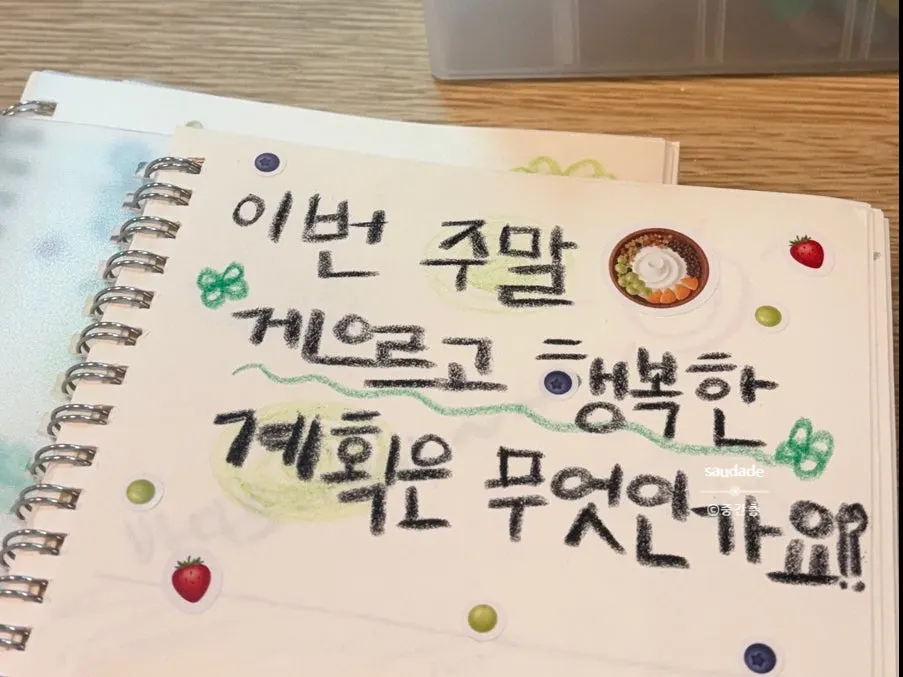 이번 주말
게으르고 행복한
계획은 무엇인가요!?
saudade
©중간흙